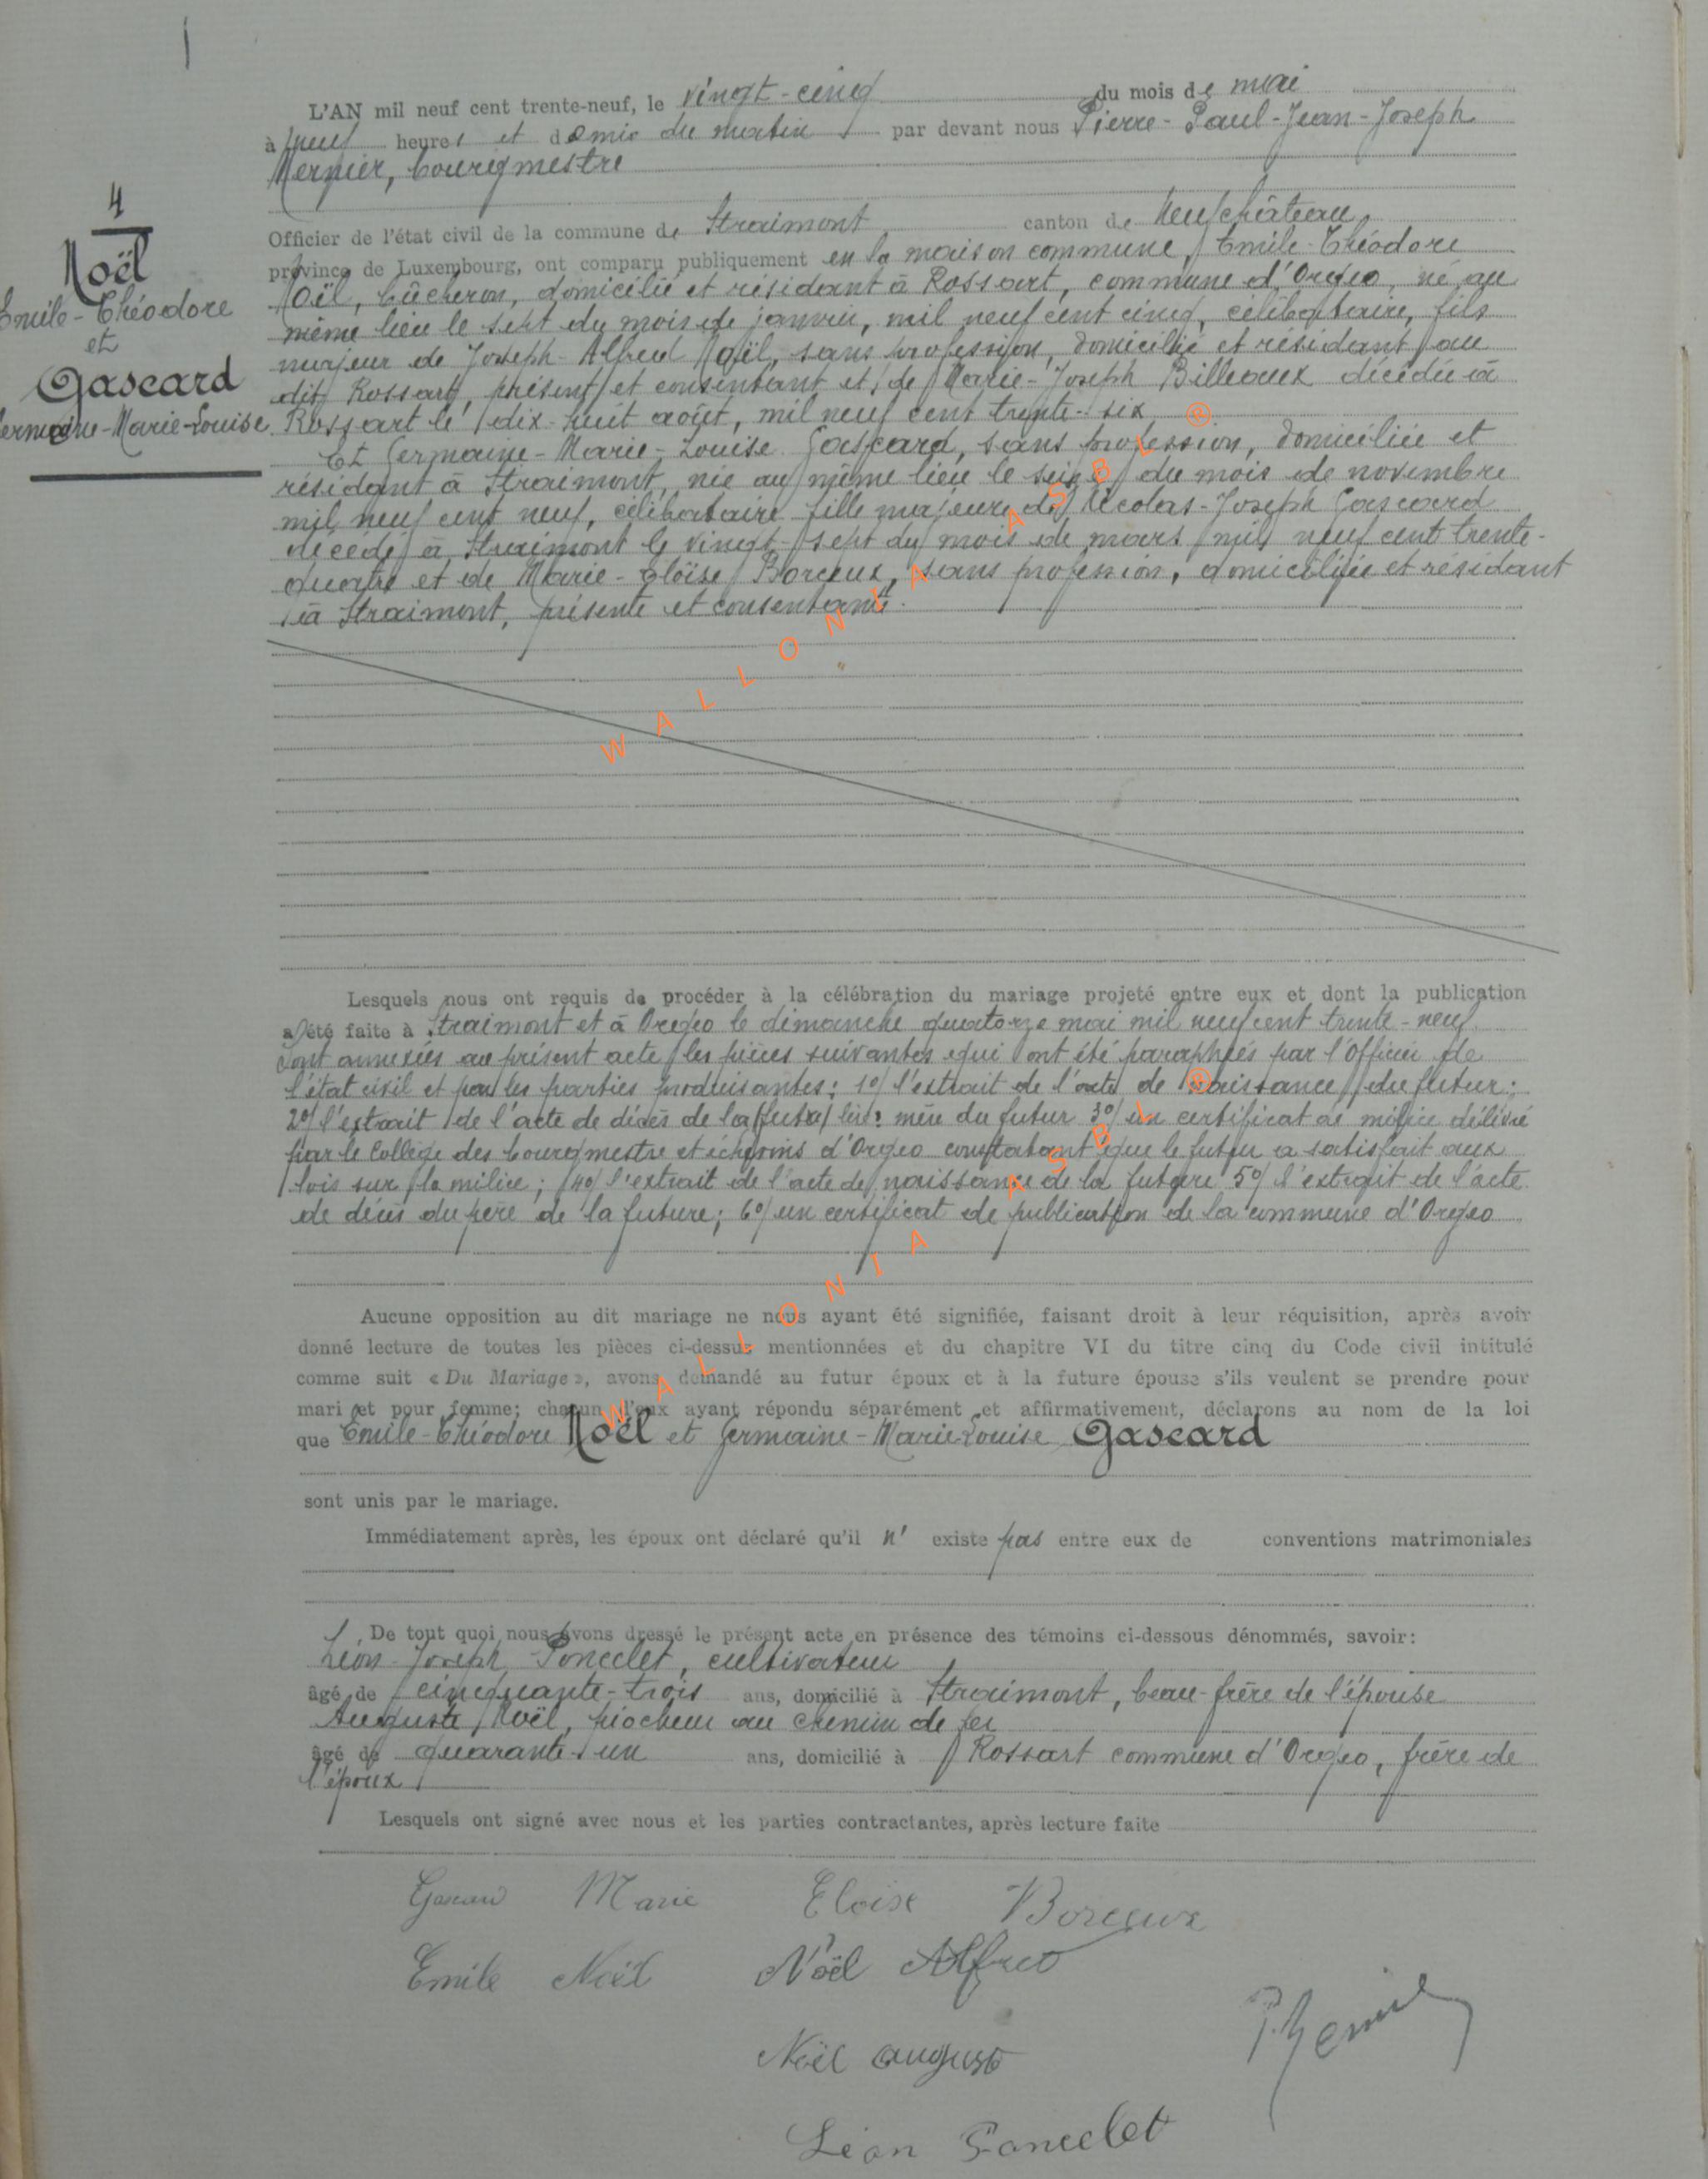 4
Noël
Emile-Théodore
et
Gascard
Germaine-Marie-Louise
L'AN mil neuf cent trente-neuf, le vingt-cinq du mois de mai
à neuf heures et demie du matin par devant nous Pierre-Paul-Jean-Joseph
Mernier, bourgmestre
Officier de l'état civil de la commune de Straimont canton de Neufchâteau,
province de Luxembourg, ont comparu publiquement en la maison commune, Emile-Théodore
Noël, bûcheron, domicilié et résidant à Rossart, commune d'Orgeo, né au
même lieu le sept du mois de janvier, mil neuf cent cinq, célibataire, fils
majeur de Joseph-Alfred Noël, sans profession, domicilié et résidant au
dit Rossart, présent et consentant et de Marie-Joseph Billeaux décédée à
Rossart le dix-huit août, mil neuf cent trente-six
Et Germaine-Marie-Louise Gascard, sans profession, domiciliée et
résidant à Straimont, née au même lieu le seize du mois de novembre
mil neuf cent neuf, célibataire fille majeure de Nicolas-Joseph Gascard
décédé à Straimont le vingt-sept du mois de mars mil neuf cent trente-
quatre et de Marie-Eloïse Borceux, sans profession, domiciliée et résidant
à Straimont, présente et consentante.
WALLONIA ASBL ®
Lesquels nous ont requis de procéder à la célébration du mariage projeté entre eux et dont la publication
a été faite à Straimont et à Orgeo le dimanche quatorze mai mil neuf cent trente-neuf.
Sont annexées au présent acte les pièces suivantes qui ont été paraphées par l'Officier de
l'état civil et par les parties produisantes: 1°/ l'extrait de l'acte de naissance du futur;
2°/ l'extrait de l'acte de décès de la (futur) lire: mère du futur 3°/ un certificat de milice délivré
par le Collège des bourgmestre et échevins d'Orgeo constatant que le futur a satisfait aux
lois sur la milice; 4°/ l'extrait de l'acte de naissance de la future 5°/ l'extrait de l'acte
de décès du père de la future; 6°/ un certificat de publication de la commune d'Orgeo
WALLONIA ASBL ®
Aucune opposition au dit mariage ne nous ayant été signifiée, faisant droit à leur réquisition, après avoir
donné lecture de toutes les pièces ci-dessus mentionnées et du chapitre VI du titre cinq du Code civil intitulé
comme suit « Du Mariage », avons demandé au futur époux et à la future épouse s'ils veulent se prendre pour
mari et pour femme; chacun d'eux ayant répondu séparément et affirmativement, déclarons au nom de la loi
que Emile-Théodore Noël et Germaine-Marie-Louise Gascard
sont unis par le mariage.
Immédiatement après, les époux ont déclaré qu'il n' existe pas entre eux de conventions matrimoniales
De tout quoi nous avons dressé le présent acte en présence des témoins ci-dessous dénommés, savoir:
Léon-Joseph Poncelet, cultivateur
âgé de cinquante-trois ans, domicilié à Straimont, beau-frère de l'épouse
Auguste Noël, piocheur au chemin de fer
âgé de quarante-un ans, domicilié à Rossart commune d'Orgeo, frère de
l'époux
Lesquels ont signé avec nous et les parties contractantes, après lecture faite
Marie Eloïse Borceux
Emile Noël Noël Alfred
Noël auguste
Léon Poncelet